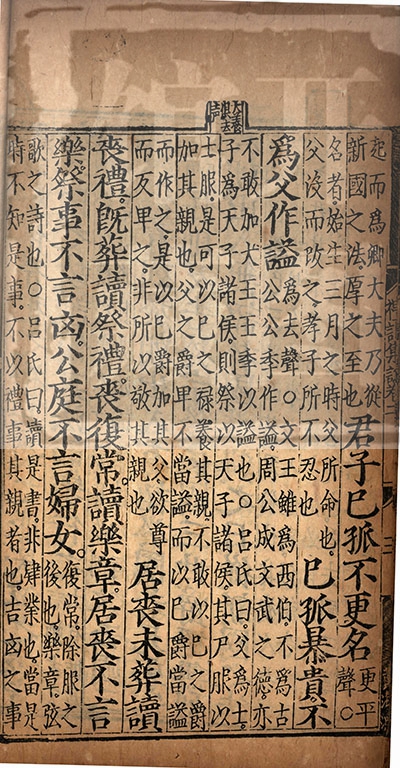 起而為卿大夫乃從
新國之法厚之至也
君子已孤不更名
更平
聲○
名者始生三月之時父所命也
父没而改之孝子所不忍也
已孤暴貴不
為父作謚
為去聲○文王雖為西伯不為古
公公季作謚周公成文武之德亦
不敢加大王王季以謚也○吕氏曰父為士
子為天子諸侯則祭以天子諸侯其尸服以
士服是可以已之禄養其親不敢以已之爵
加其親也父之爵卑不當謚而以已爵當謚
而作之是以已爵加其父欲尊
而反卑之非所以敬其親也
居喪未葬讀
喪禮。既葬讀祭禮。喪復常。讀樂章。居喪不言
樂。祭事不言凶。公庭不言婦女。
復常。除服之
後也。樂章弦
歌之詩也○吕氏曰讀是書。非肄業也。當是
時不知是事。不以禮事其親者也。吉凶之事